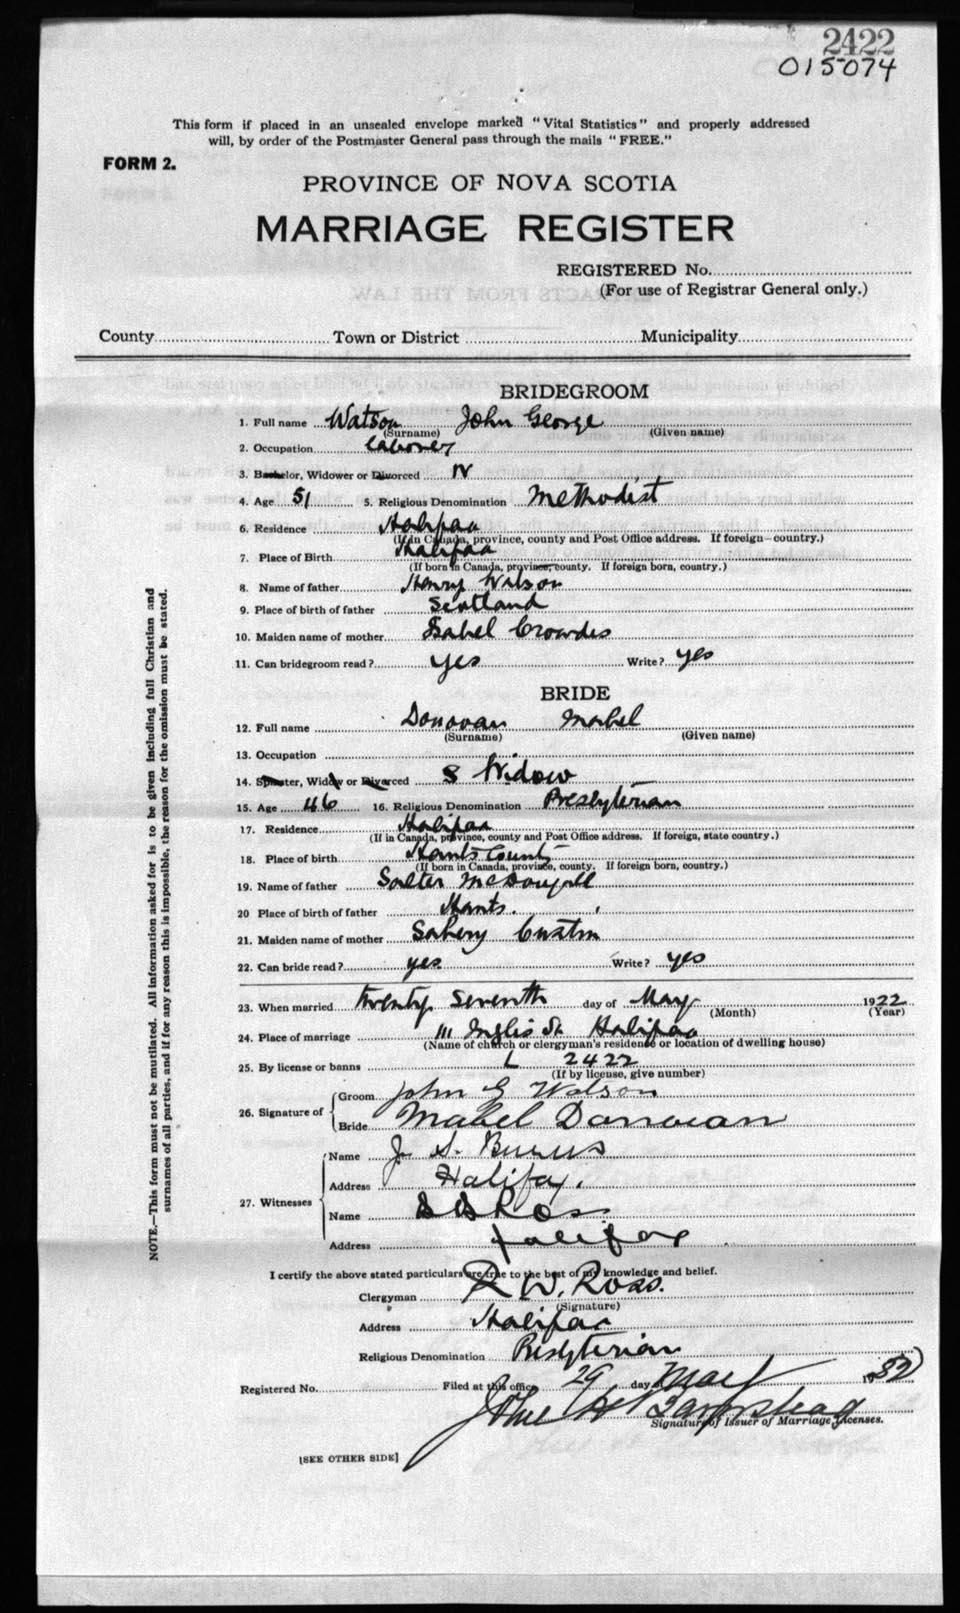 2422
015074
This form if placed in an unsealed envelope marked "Vital Statistics" and properly addressed
will, by order of the Postmaster General pass through the mails "FREE."
FORM 2.
PROVINCE OF NOVA SCOTIA
MARRIAGE REGISTER
REGISTERED No.
(For use of Registrar General only.)
County Town or District Municipality
BRIDEGROOM
1. Full name Watson John George
(Surname) (Given name)
2. Occupation laborer
3. Bachelor, Widower or Divorced W
4. Age 51 5. Religious Denomination Methodist
6. Residence Halifax
(If in Canada, province, county and Post Office address. If foreign—country.)
7. Place of Birth Halifax
(If born in Canada, province, county. If foreign born, country.)
8. Name of father Henry Watson
9. Place of birth of father Scotland
10. Maiden name of mother Isabel
11. Can bridegroom read? yes Write? yes
BRIDE
12. Full name Donovan Mabel
(Surname) (Given name)
13. Occupation
14. Spinster, Widow or Divorced S Widow
15. Age 46 16. Religious Denomination Presbyterian
17. Residence Halifax
(If in Canada, province, county and Post Office address. If foreign, state country.)
18. Place of birth Hants County
(If born in Canada, province, county. If foreign born, country.)
19. Name of father Salter McDougall
20 Place of birth of father Hants.
21. Maiden name of mother
22. Can bride read? yes Write? yes
23. When married twenty seventh day of May 1922
(Month) (Year)
24. Place of marriage 111 Inglis St Halifax
(Name of church or clergyman's residence or location of dwelling house)
25. By license or banns L 2422
(If by license, give number)
26. Signature of Groom John G Watson
Bride Mabel Donovan
27. Witnesses
Name J. S. Burns
Address Halifax.
Name Ross
Address Halifax
I certify the above stated particulars are true to the best of my knowledge and belief.
Clergyman R W. Ross.
(Signature)
Address Halifax
Religious Denomination Presbyterian
Registered No. Filed at this office 29 day of May
John
Signature of Issuer of Marriage Licenses.
[SEE OTHER SIDE]
NOTE.—This form must not be mutilated. All information asked for is to be given including full Christian and
surnames of all parties, and if for any reason this is impossible, the reason for the omission must be stated.